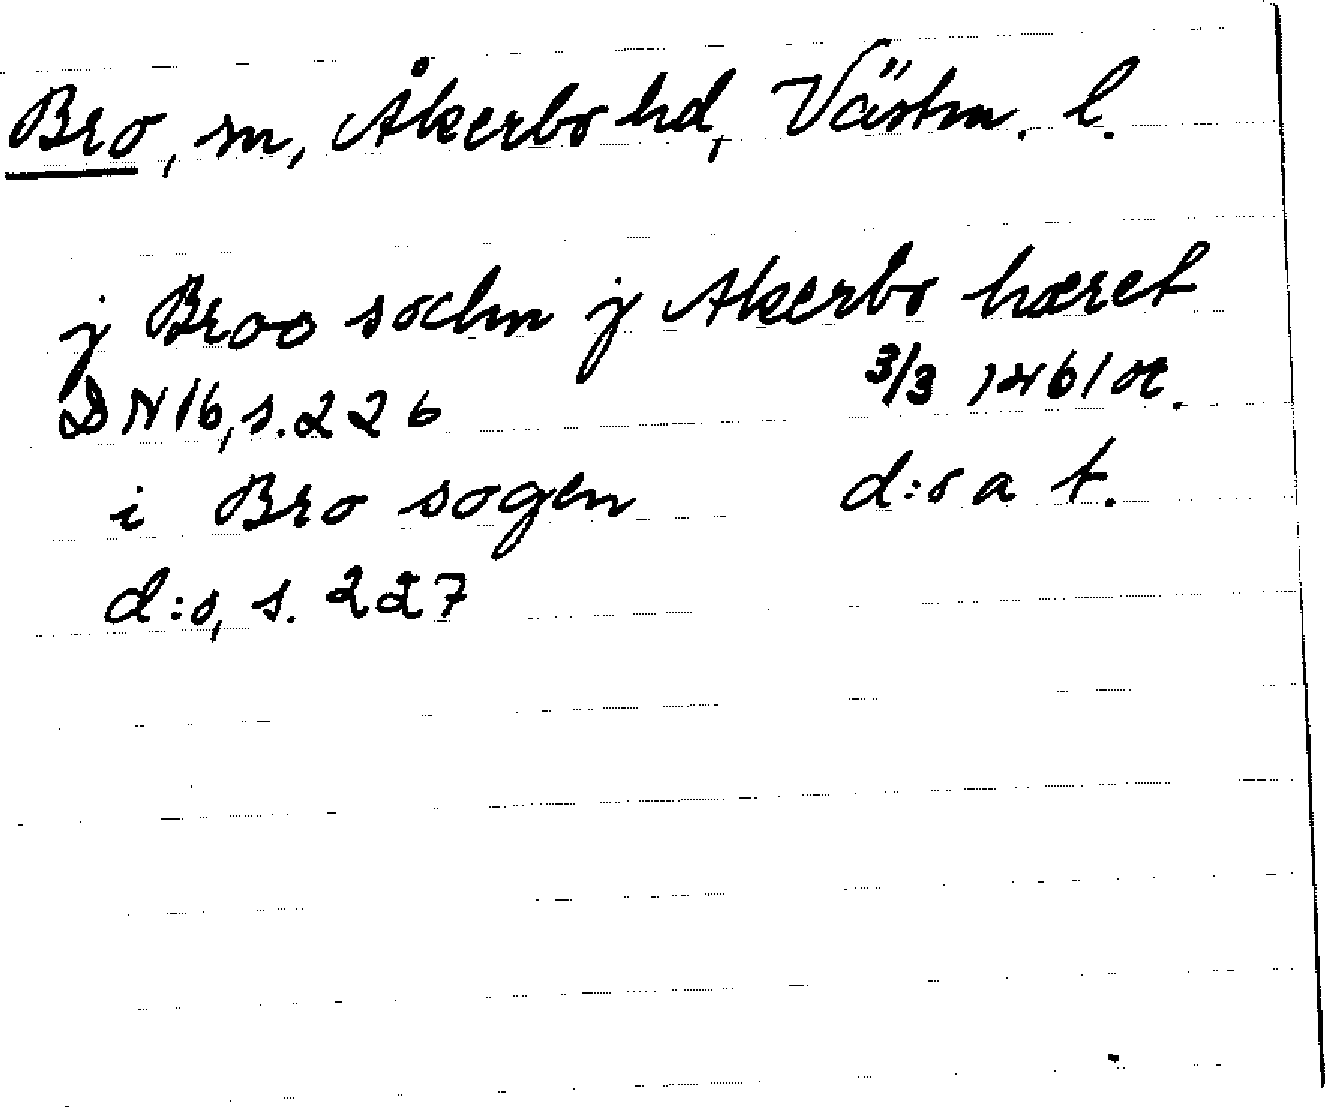 Bro, sn, Åkerbo hd, Västm. l.
j Broo sochn j Akerbo hæret
DN 16, s. 226 3/3 1461 or.
i Bro sogen d:o a t.
d:o, s. 227